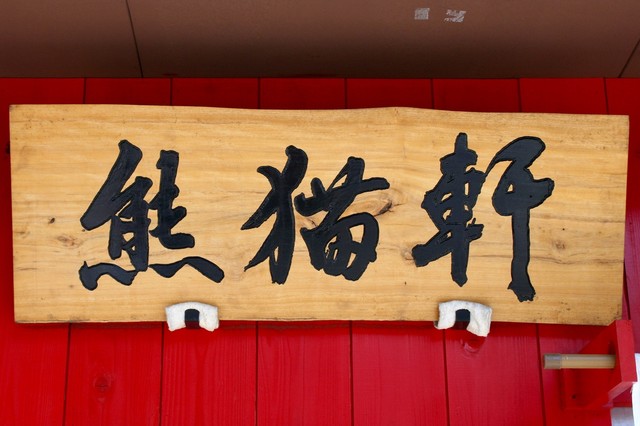 熊猫軒